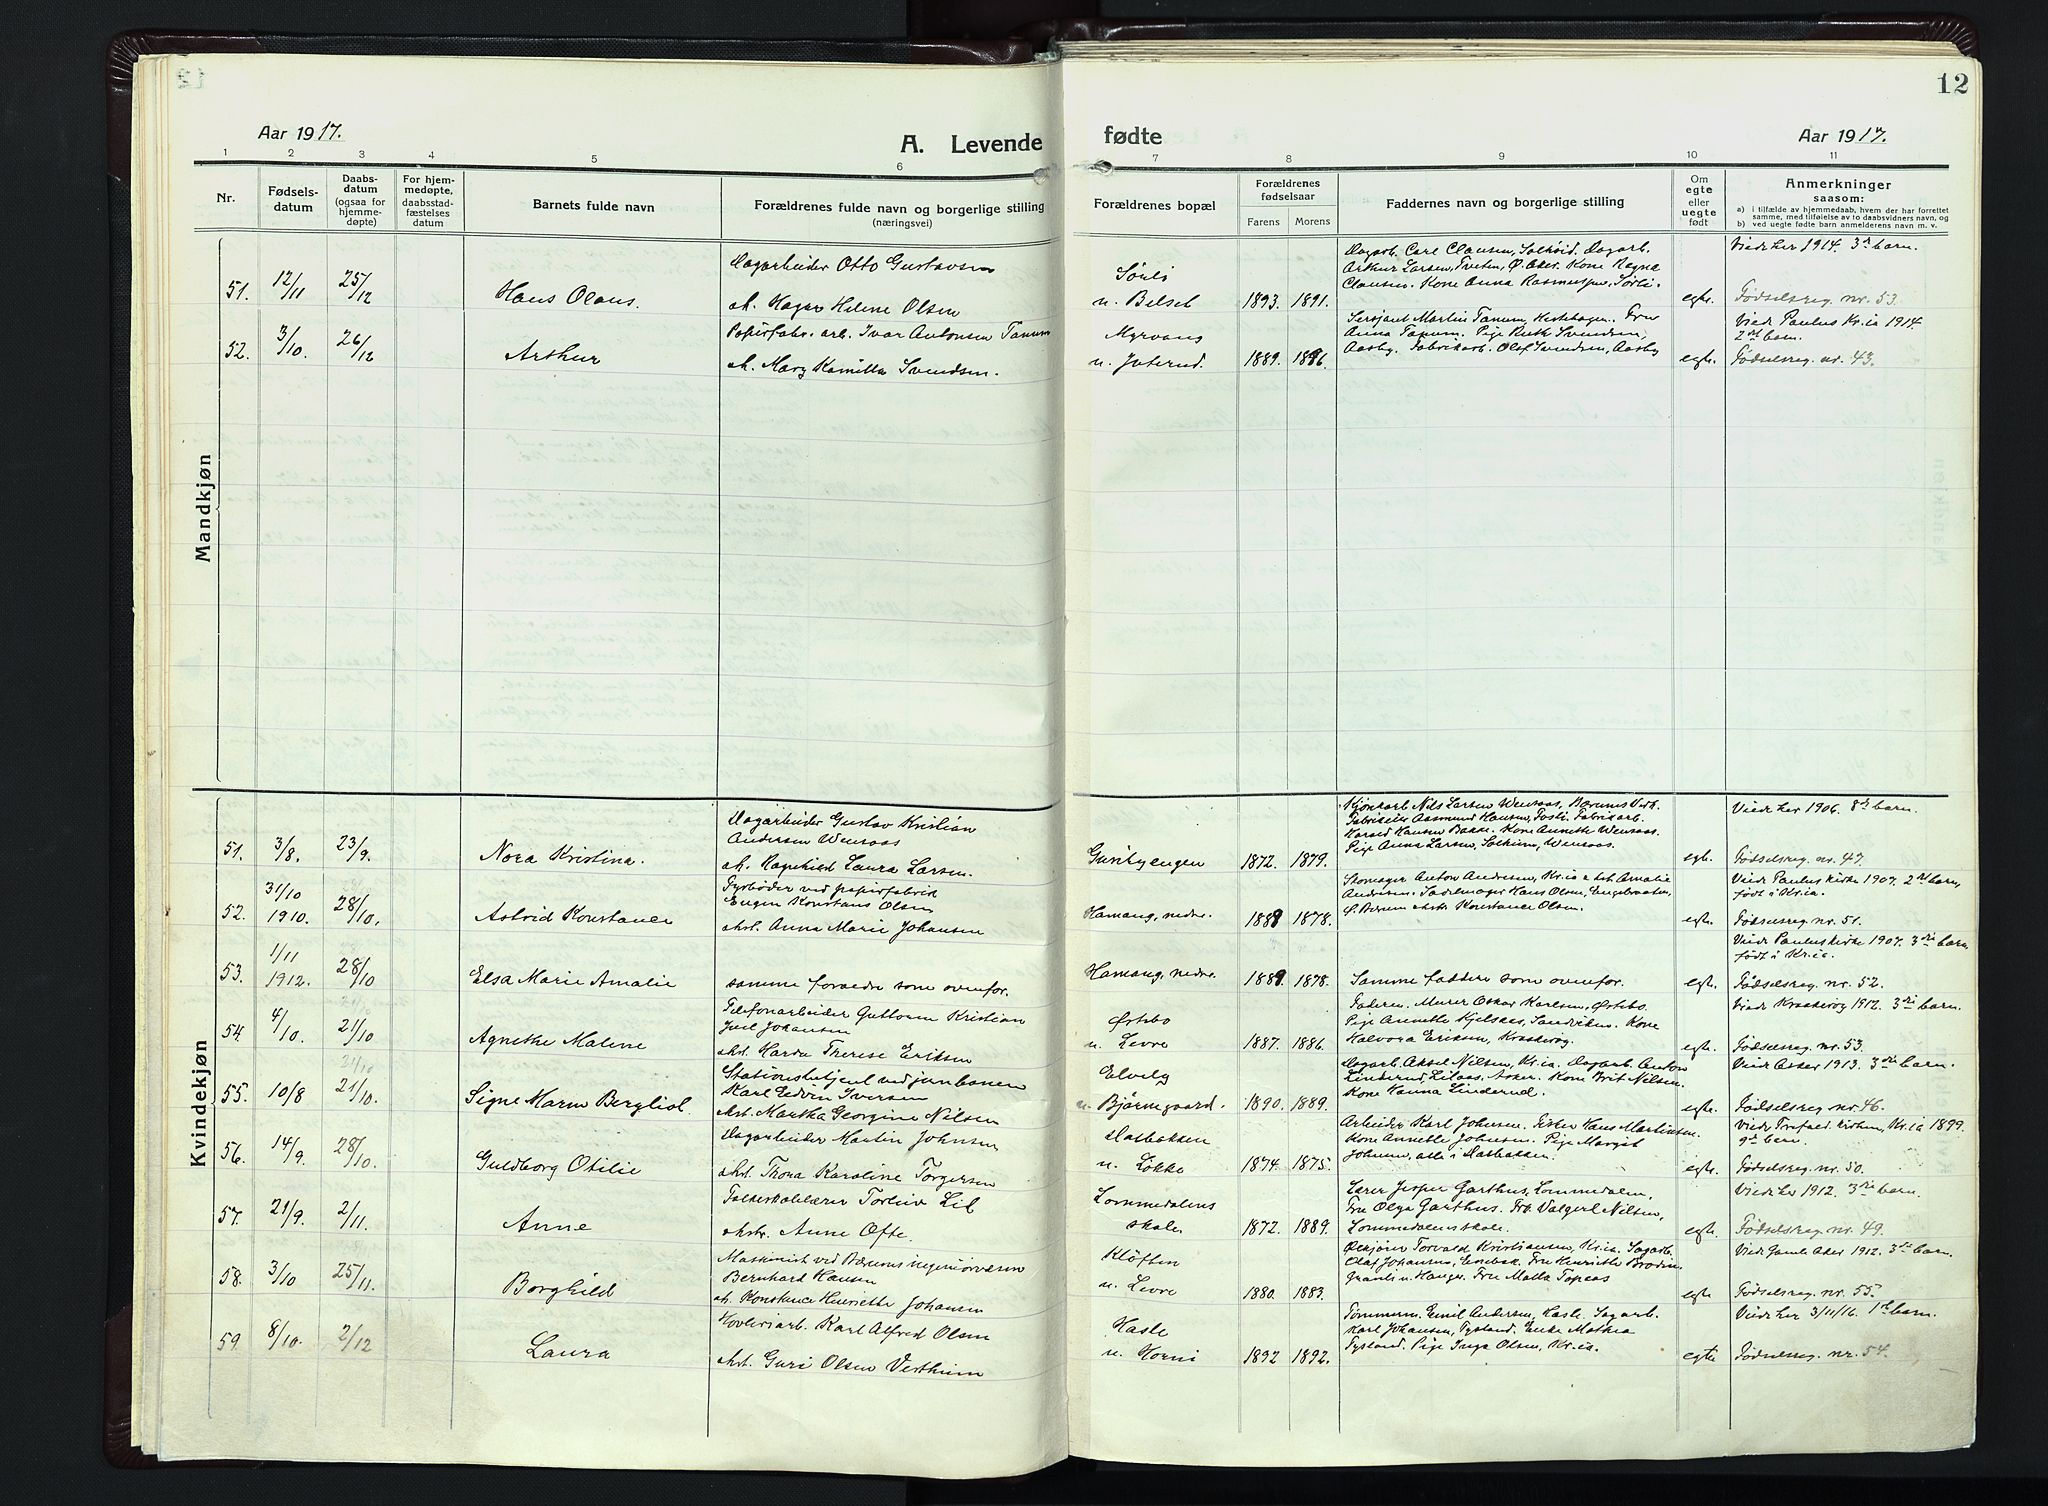 12
Aar 1917.
A. Levende
fødte
Aar 1917.
1 2 3 4 5 6 7 8 9 10 11
Nr.
Fødsels-
datum
Daabs-
datum
(ogsaa for
hjemme-
døpte)
For hjem-
medøpte,
daabsstad-
fæstelses
datum
Barnets fulde navn
Forældrenes fulde navn og borgerlige stilling
(næringsvei)
Forældrenes bopæl
Forældrenes
fødselsaar
Farens Morens
Faddernes navn og borgerlige stilling
Om
egte
eller
uegte
født
Anmerkninger
saasom:
a) i tilfælde av hjemmedaab, hvem der har forrettet
samme, med tilføielse av to daabsvidners navn, og
b) ved uegte fødte barn anmelderens navn m. v.
Mandkjøn
51. 12/11 25/12 Hans Olaus.
Dagarbeider Otto Gustavsen
h. Hagar Helene Olsen
Sørli
u. Belset 1893. 1891.
Dagarb. Carl Clausen, Solhøid. Dagarb.
Arthur Larsen, Tveten, Ø. Aker. Kone Ragna
Clausen. Kone Anna Rasmussen, Sørli.
egte.
Viedt her 1914. 3die barn.
Fødselsreg. nr. 53.
52. 3/10. 26/12 Arthur
Papirfabr. arb. Ivar Antonsen Tanum
h. Mary Kamilla Svendsen.
Myrvang
u. Juterud 1889. 1896.
Sersjant Martin Tanum, Hestehagen. Fru
Anna Tanum. Pige Ruth Svendsen,
Aasby. Fabrikarb. Olaf Svendsen, Aasby
egte.
Viedt Paulus Kr.ia 1914.
2det barn.
Fødselsreg. nr. 43.
Kvindekjøn
51. 3/8. 23/9. Nora Kristina.
Dagarbeider Gustav Kristian
Andersen Wensaas
h. Ragnhild Laura Larsen.
1872. 1879.
Nils Larsen Wensaas, Bærums Verk.
Fabrikeier Aasmund Hansen, Tosli. Fabrikarb.
Harald Hansen Bakke. Kone Annette Wensaas.
Pige Anna Larsen, Solheim, Wensaas.
egte.
Viedt her 1906. 8de barn.
Fødselsreg. nr. 47.
52. 31/10 1910. 28/10. Astrid Konstance
Fyrbøder ved papirfabrik
Eugen Konstans Olsen
hst. Anna Marie Johansen
Hamang, nedre. 1889 1878.
Skomager Anton Andresen, Kr.ia & hst. Amalie
Andresen. Sadelmager Hans Olsen, Engebraaten,
Ø. Bærum. hst. Konstance Olsen.
egte.
Viedt Paulus kirke 1907. 2det barn,
født i Kr.ia.
Fødselsreg. nr. 51.
53. 1/11 1912. 28/10 Elsa Marie Amalie
samme foraeldre som ovenfor.
Hamang, nedre. 1889. 1878.
Samme faddere som ovenfor.
egte.
Viedt Paulus kirke 1907. 3die barn,
født i Kr.ia.
Fødselsreg. nr. 52.
54. 4/10. 21/10 Agnethe Malene
Telefonarbeider Guttorm Kristian
Juel Johansen
hst. Harda Therese Eriksen
Østebo
u. Levre 1887. 1886.
Faderen. Murer Oskar Karlsen, Østebo.
Pige Annette Kjelsaas, Sandviken. Kone
Halvora Eriksen, Kragerøg.
egte.
Viedt Kragerøg 1912. 3die barn.
Fødselsreg. nr. 53.
55. 10/8 21/10. Signe Marie Bergliot.
Stationsbetjent ved jernbanen
Karl Edvin Iversen
hst. Martha Georgine Nilsen
Elvely
u. Bjørnegaard. 1890. 1889.
Dagarb. Aksel Nilsen, Kr.ia. Dagarb. Anton
Linderud, Lilaas, Asker. Kone Brit Nilsen.
Kone Hanna Linderud.
egte.
Viedt Asker 1913. 3die barn.
Fødselsreg. nr. 46.
56. 14/9. 28/10. Guldborg Otilie
Dagarbeider Martin Johnsen
hst. Thora Karoline Torgersen
Matbakken
u. Løkke 1874. 1875.
Arbeider Karl Johnsen. Fisker Hans Martinsen.
Kone Annette Johnsen. Pige Margit
Johnsen, alle i Matbakken.
egte.
Viedt Trefold. kirken, Kr.ia 1899.
9de barn.
Fødselsreg. nr. 50.
57. 21/9. 2/11. Anne
Folkeskolelærer Torleiv Lil
hst. Anne Ofte.
Lommedalens
skole 1872. 1889.
Lærer Jesper Garthus, Lommedalen,
Fru Olga Garthus. Frk. Valgerd Nilsen,
Lommedalens skole.
egte.
Viedt her 1912. 3die barn.
Fødselsreg. nr. 49.
58. 3/10 25/11. Borghild
Maskinist ved Bærums ingeniørvæsen
Bernhard Hansen
h. Konstance Henriette Johansen
Kløften
u. Levre 1880. 1883.
Torvald Kristiansen, Kr.ia. Sagarb.
Olaf Johansen, Enebak. Fru Henriette Brodin,
Granli u. Hauger. Fru Malla Topaas
egte
Viedt Gamle Aker 1912. 3die barn.
Fødselsreg. nr. 55.
59. 8/10. 2/12 Laura
Høvleriarb. Karl Alfred Olsen
hst. Guri Olsen Vestheim
Hasle
u. Horni 1892 1892.
Tømmerm. Emil Andersen, Hasle. Sagarb.
Karl Johansen, Tysland. Enke Mathea
Tysland. Pige Inga Olsen, Kr.ia.
egte
Viedt her 3/11/16. 1ste barn.
Fødselsreg. nr. 54.